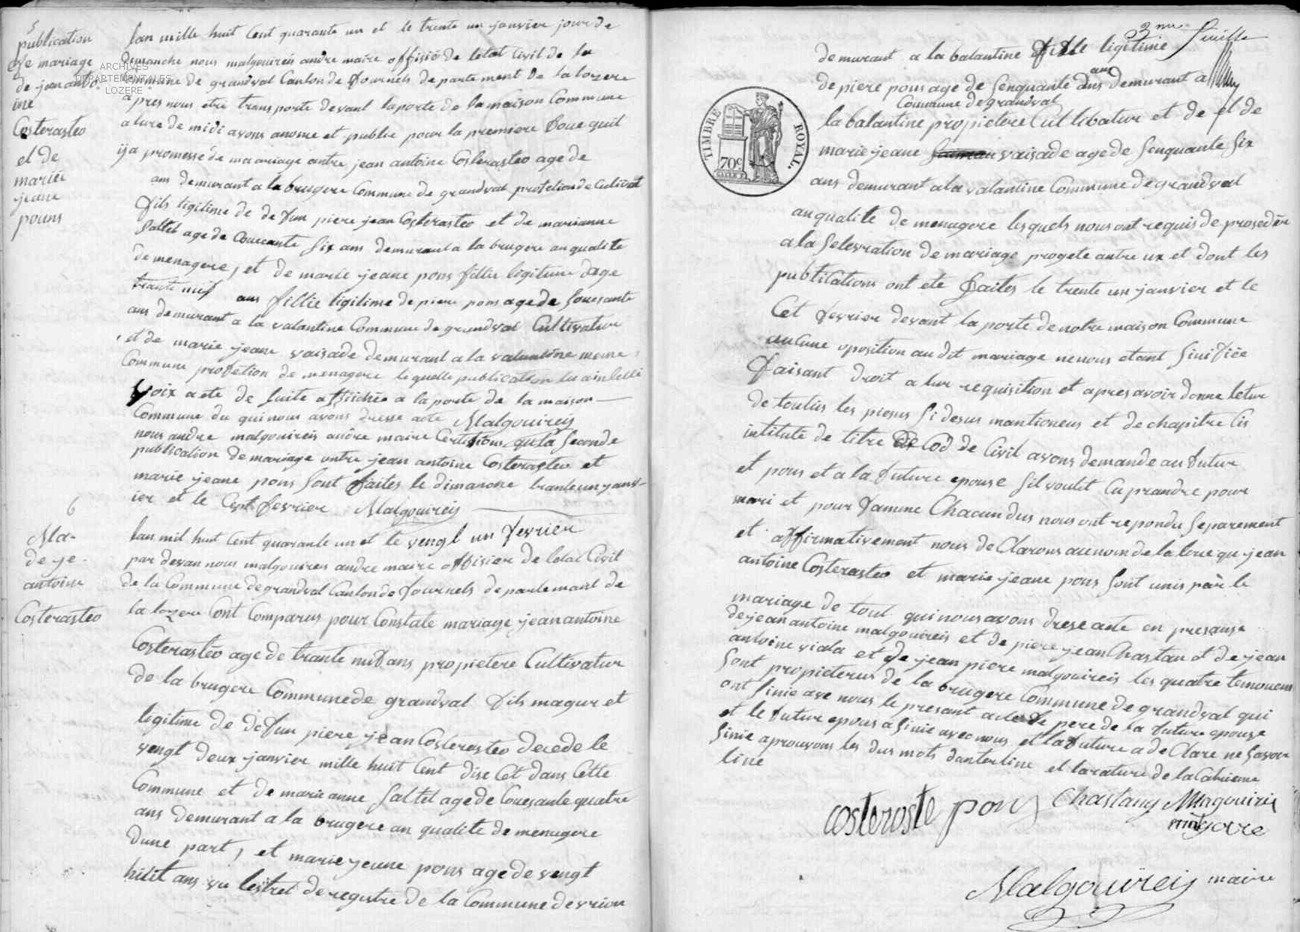 5
publication
de mariage
de jean anto-
ine
Costerasteo
et de
marie
jeune
pouns
ARCHIVES
DÉPARTEMENTALES
LOZERE
Lan mille huit Cent quarante un et le trente un janvier jour de
dimanche nous malgouireis andre maire offisié de letat Civil de la
Commune de grandval Canton de fournels departement de la lozere
apres nous être transporte devant la porte de la maison Commune
a lure de midi avons anonse et publie pour la premiere foue quil
ija promesse de maariage antre jean antoine Costerasteo age de
ans demurant a la brugere Commune de grandval profetion de Cultivat
fils ligitime de defun piere jean Costerasteo et de marianne
Saltel age de Couecante Six ans demurant a la brugere an qualite
de menagere, et de marie jeane pons fillie legitime dage
trante neuf ans fillie ligitime de piere pons age de Souesante
ans demurant a la valantine Commune de grandval Cultivateur
, et de marie jeane vaisade demurant a la valantine meme
Commune profetion de menagere lequelle publication lu ain belle
voix acte de Suite affichée a la porte de la maison
Commune du qui nous avons drese acte Malgouireis
nous andre malgouireis andre maire Certifions que la Seconde
publication de mariage entre jean antoine Costerasteo et
marie jeane pons Sont faites le dimanche trante un janv-
ier et le Cept fevrier Malgouireis
6
Ma-
de je-
antoine
Costerasteo
Lan mil huit Cent quarante un et le vengt un fevrier
par devan nous malgouires andre maire offisier de letat Civil
de la Commune de grandval Canton de fournels departement de
la lozere ont Comparus pour Constate mariage jean antoine
Costerasteo age de trante nuf ans propietere Cultivatur
de la brugere Commune de grandval fils magur et
legitime de defun piere jean Costerasteo decede le
vengt deux janvier mille huit Cent dise Cet dans Cette
Commune et de marianne Saltel age de Couesante quatre
ans demurant a la brugere an qualite de menagere
dune part, et marie jeune pons age de vengt
hitit ans vu lestret de registre de la Commune de vrion
3me feuille
demurant a la balantine fille legitime
de piere pons age de Senquante dus ans demurant a
Commune de grandval
la balantine propietere Cultibatur et de et de
marie jeane vaisade age de Senquante Six
ans demurant a la valantine Commune de grandval
TIMBRE ROYAL.
70c
an qualite de menagere lesquels nous ont requis de prosedér
a la Selevration de mariage progete antre ux et dont les
publications ont eté faites le trente un janvier et le
Cet fevrier devant la porte de notre maison Commune
aucune oposition au dit mariage ne nous etant Sinifiée
faisant droit a lur requisition et apres avoir donne letur
de toutes les pieses Si desus mantioneus et de chapitre Cis
intitute de titre de Cod de Civil avons demande au futur
et pous et a la future epouse Sil voulet Cu prandre pour
mari et pour famme Chacun dus nous ont repondu Separement
et affirmativement nous de Clarons au nom de la love que jean
antoine Costerasteo et marie jeane pons Sont unis par le
mariage de tout qui nous avons drese acte en presanse
de jean antoine malgouireis et de piere jean Chastan et de jean
antoine viala et de jean piere malgouireis les quatre temouens
Sont propieterus de la brugere Commune de grandval qui
ont Sinie ave nous le presant acte le pere de la future epouse
et le future epous a Sinie avec nous et la future a de Clare ne Savoir
Sinie aprouvons les dus mots danterline et la rature de la Catrieme
line
costeroste pons Chastang Malgouireis
maire
Malgouireis maire